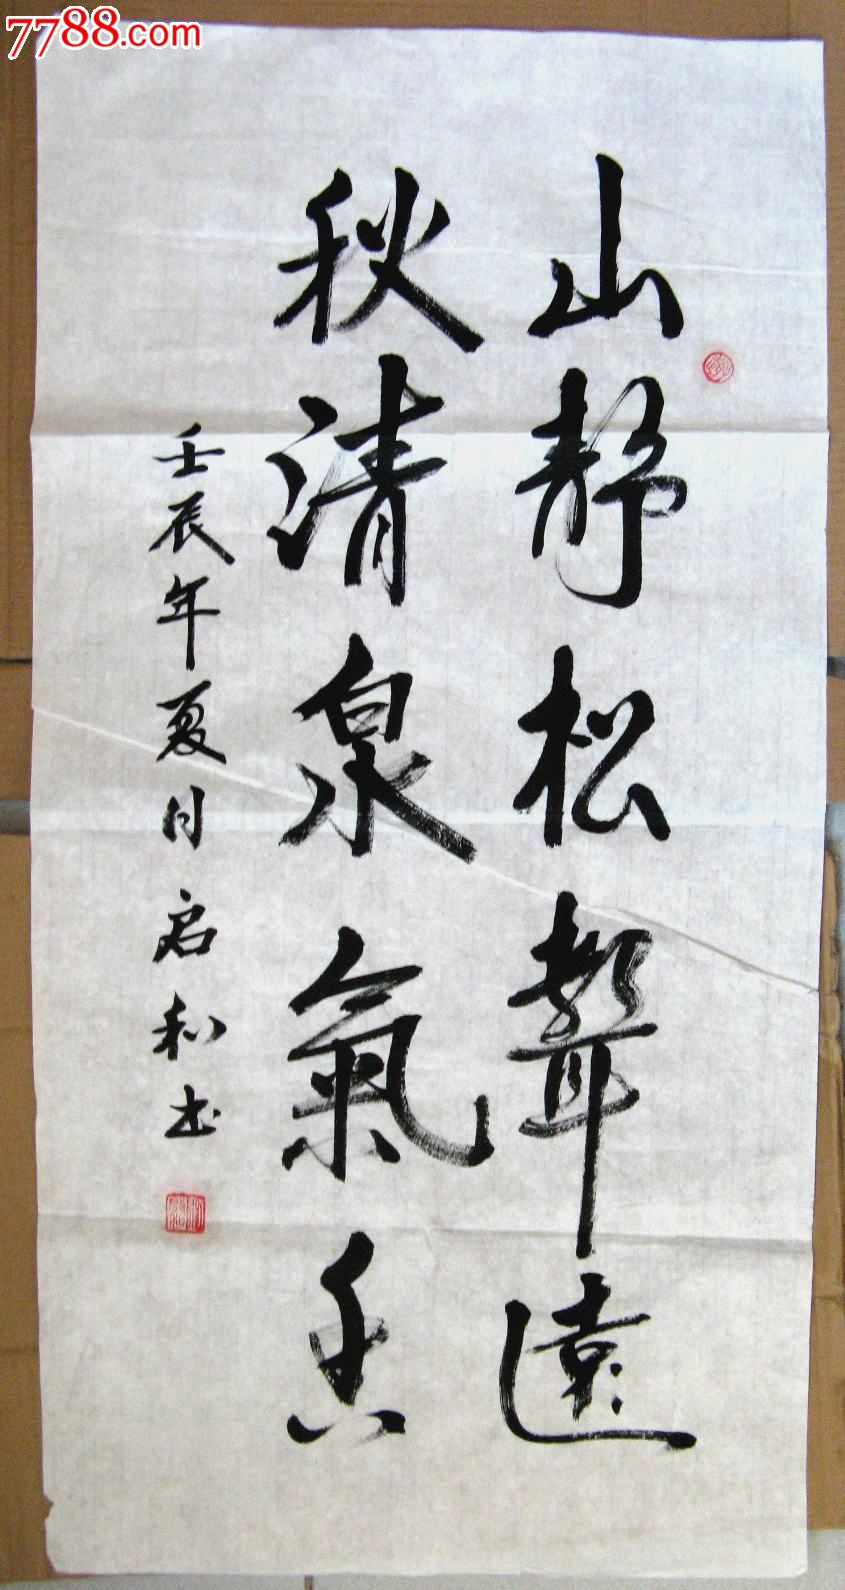 7788.com
山静松聲遠
秋清泉氣香
壬辰年夏月启和书